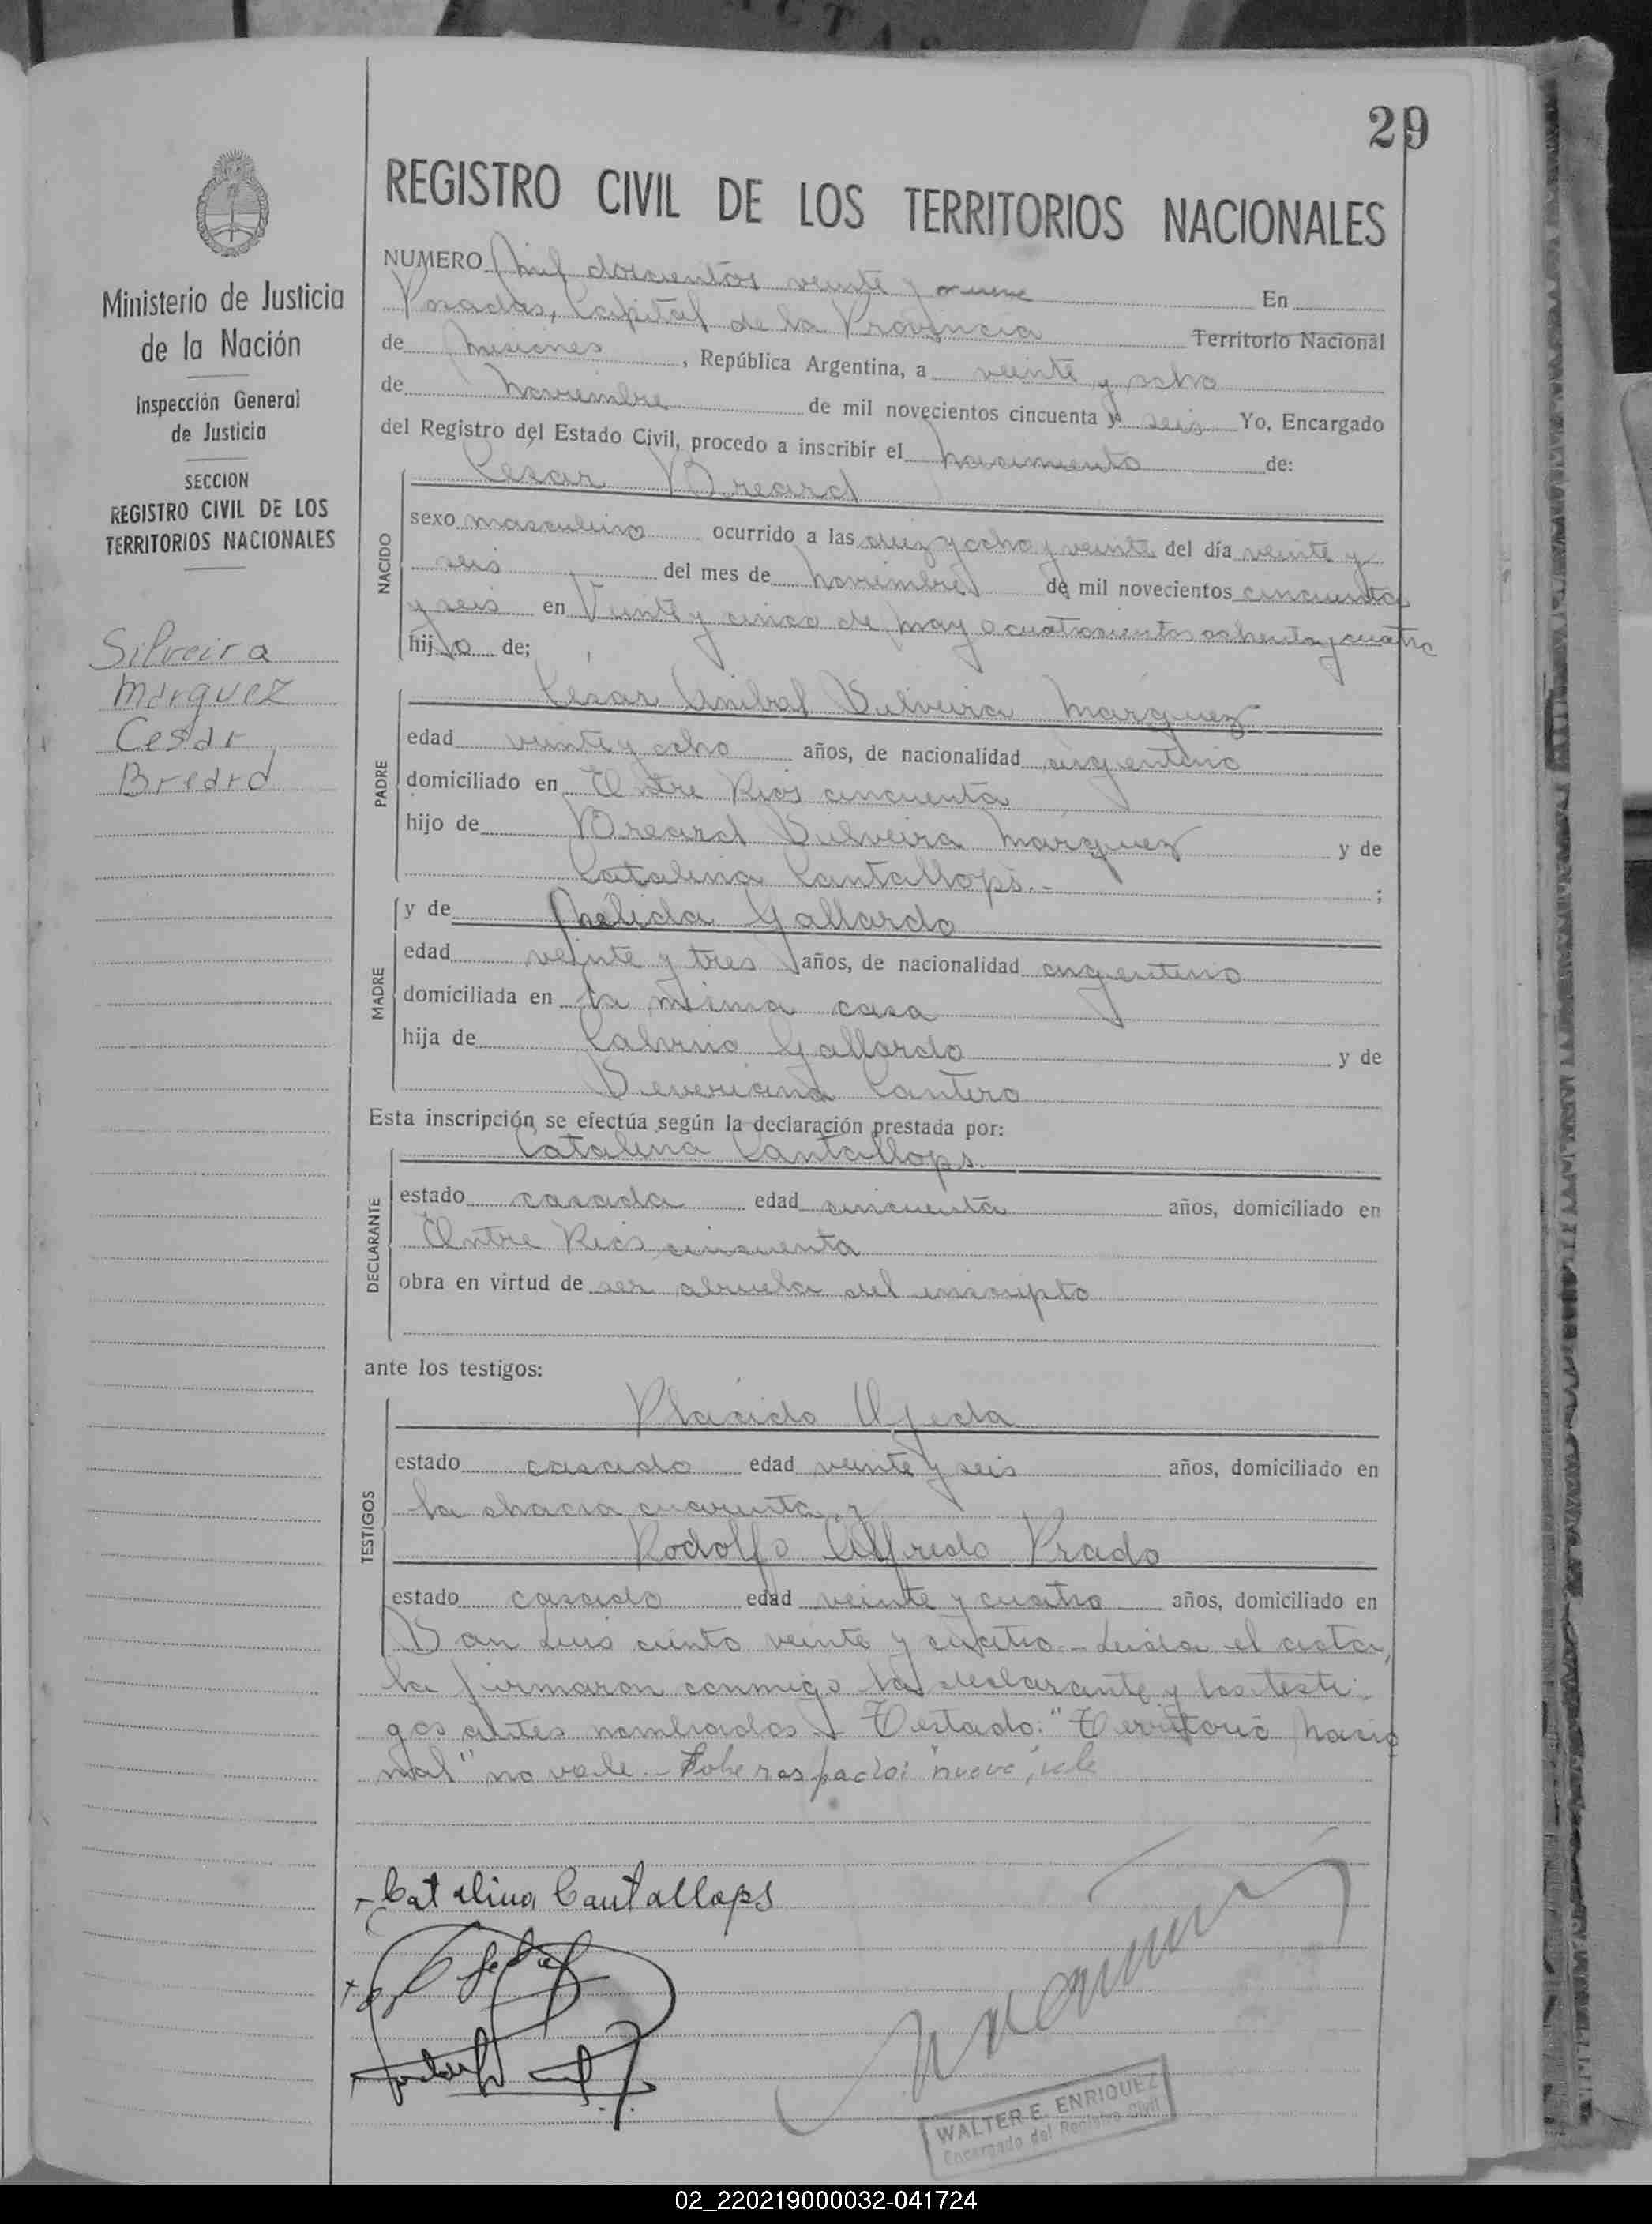 ACTAS
29
REGISTRO CIVIL DE LOS TERRITORIOS NACIONALES
Ministerio de Justicia
de la Nación
Inspección General
de Justicia
SECCION
REGISTRO CIVIL DE LOS
TERRITORIOS NACIONALES
Silveira
Márquez
Cesar
Breard
NUMERO Mil doscientos veinte y nueve En
Posadas, Capital de la Provincia Territorio Nacional
de Misiones, República Argentina, a veinte y ocho
de Noviembre de mil novecientos cincuenta y seis Yo, Encargado
del Registro del Estado Civil, procedo a inscribir el Nacimiento de:
NACIDO
Cesar Breard
sexo masculino ocurrido a las diez y ocho y veinte del día veinte y
seis del mes de Noviembre de mil novecientos cincuenta
y seis en Veinte y cinco de Mayo cuatrocientos ochenta y cuatro
hijo de;
PADRE
Cesar Anibal Silveira Márquez
edad veinte y ocho años, de nacionalidad argentino
domiciliado en Entre Rios cincuenta
hijo de Breard Silveira Márquez y de
Catalina Cantallops.- ;
MADRE
y de Nélida Gallardo
edad veinte y tres años, de nacionalidad argentino
domiciliada en la misma casa
hija de Gallardo y de
Severiana Cantero
Esta inscripción se efectúa según la declaración prestada por:
DECLARANTE
Catalina Cantallops.
estado casada edad cincuenta años, domiciliado en
Entre Rios cincuenta
obra en virtud de ser abuela del inscripto
ante los testigos:
TESTIGOS
Placido Ojeda
estado casado edad veinte y seis años, domiciliado en
la chacra cuarenta y
Rodolfo Alfredo Prado
estado casado edad veinte y cuatro años, domiciliado en
San Luis ciento veinte y cuatro.- Leída el acta,
la firmaron conmigo la declarante y los testi-
gos antes nombrados. Testado: "Territorio Nacio
nal" no vale.- Sobre raspado: "nueve", vale
Catalina Cantallops
WALTER E. ENRIQUEZ
Encargado del Registro Civil
02_220219000032-041724